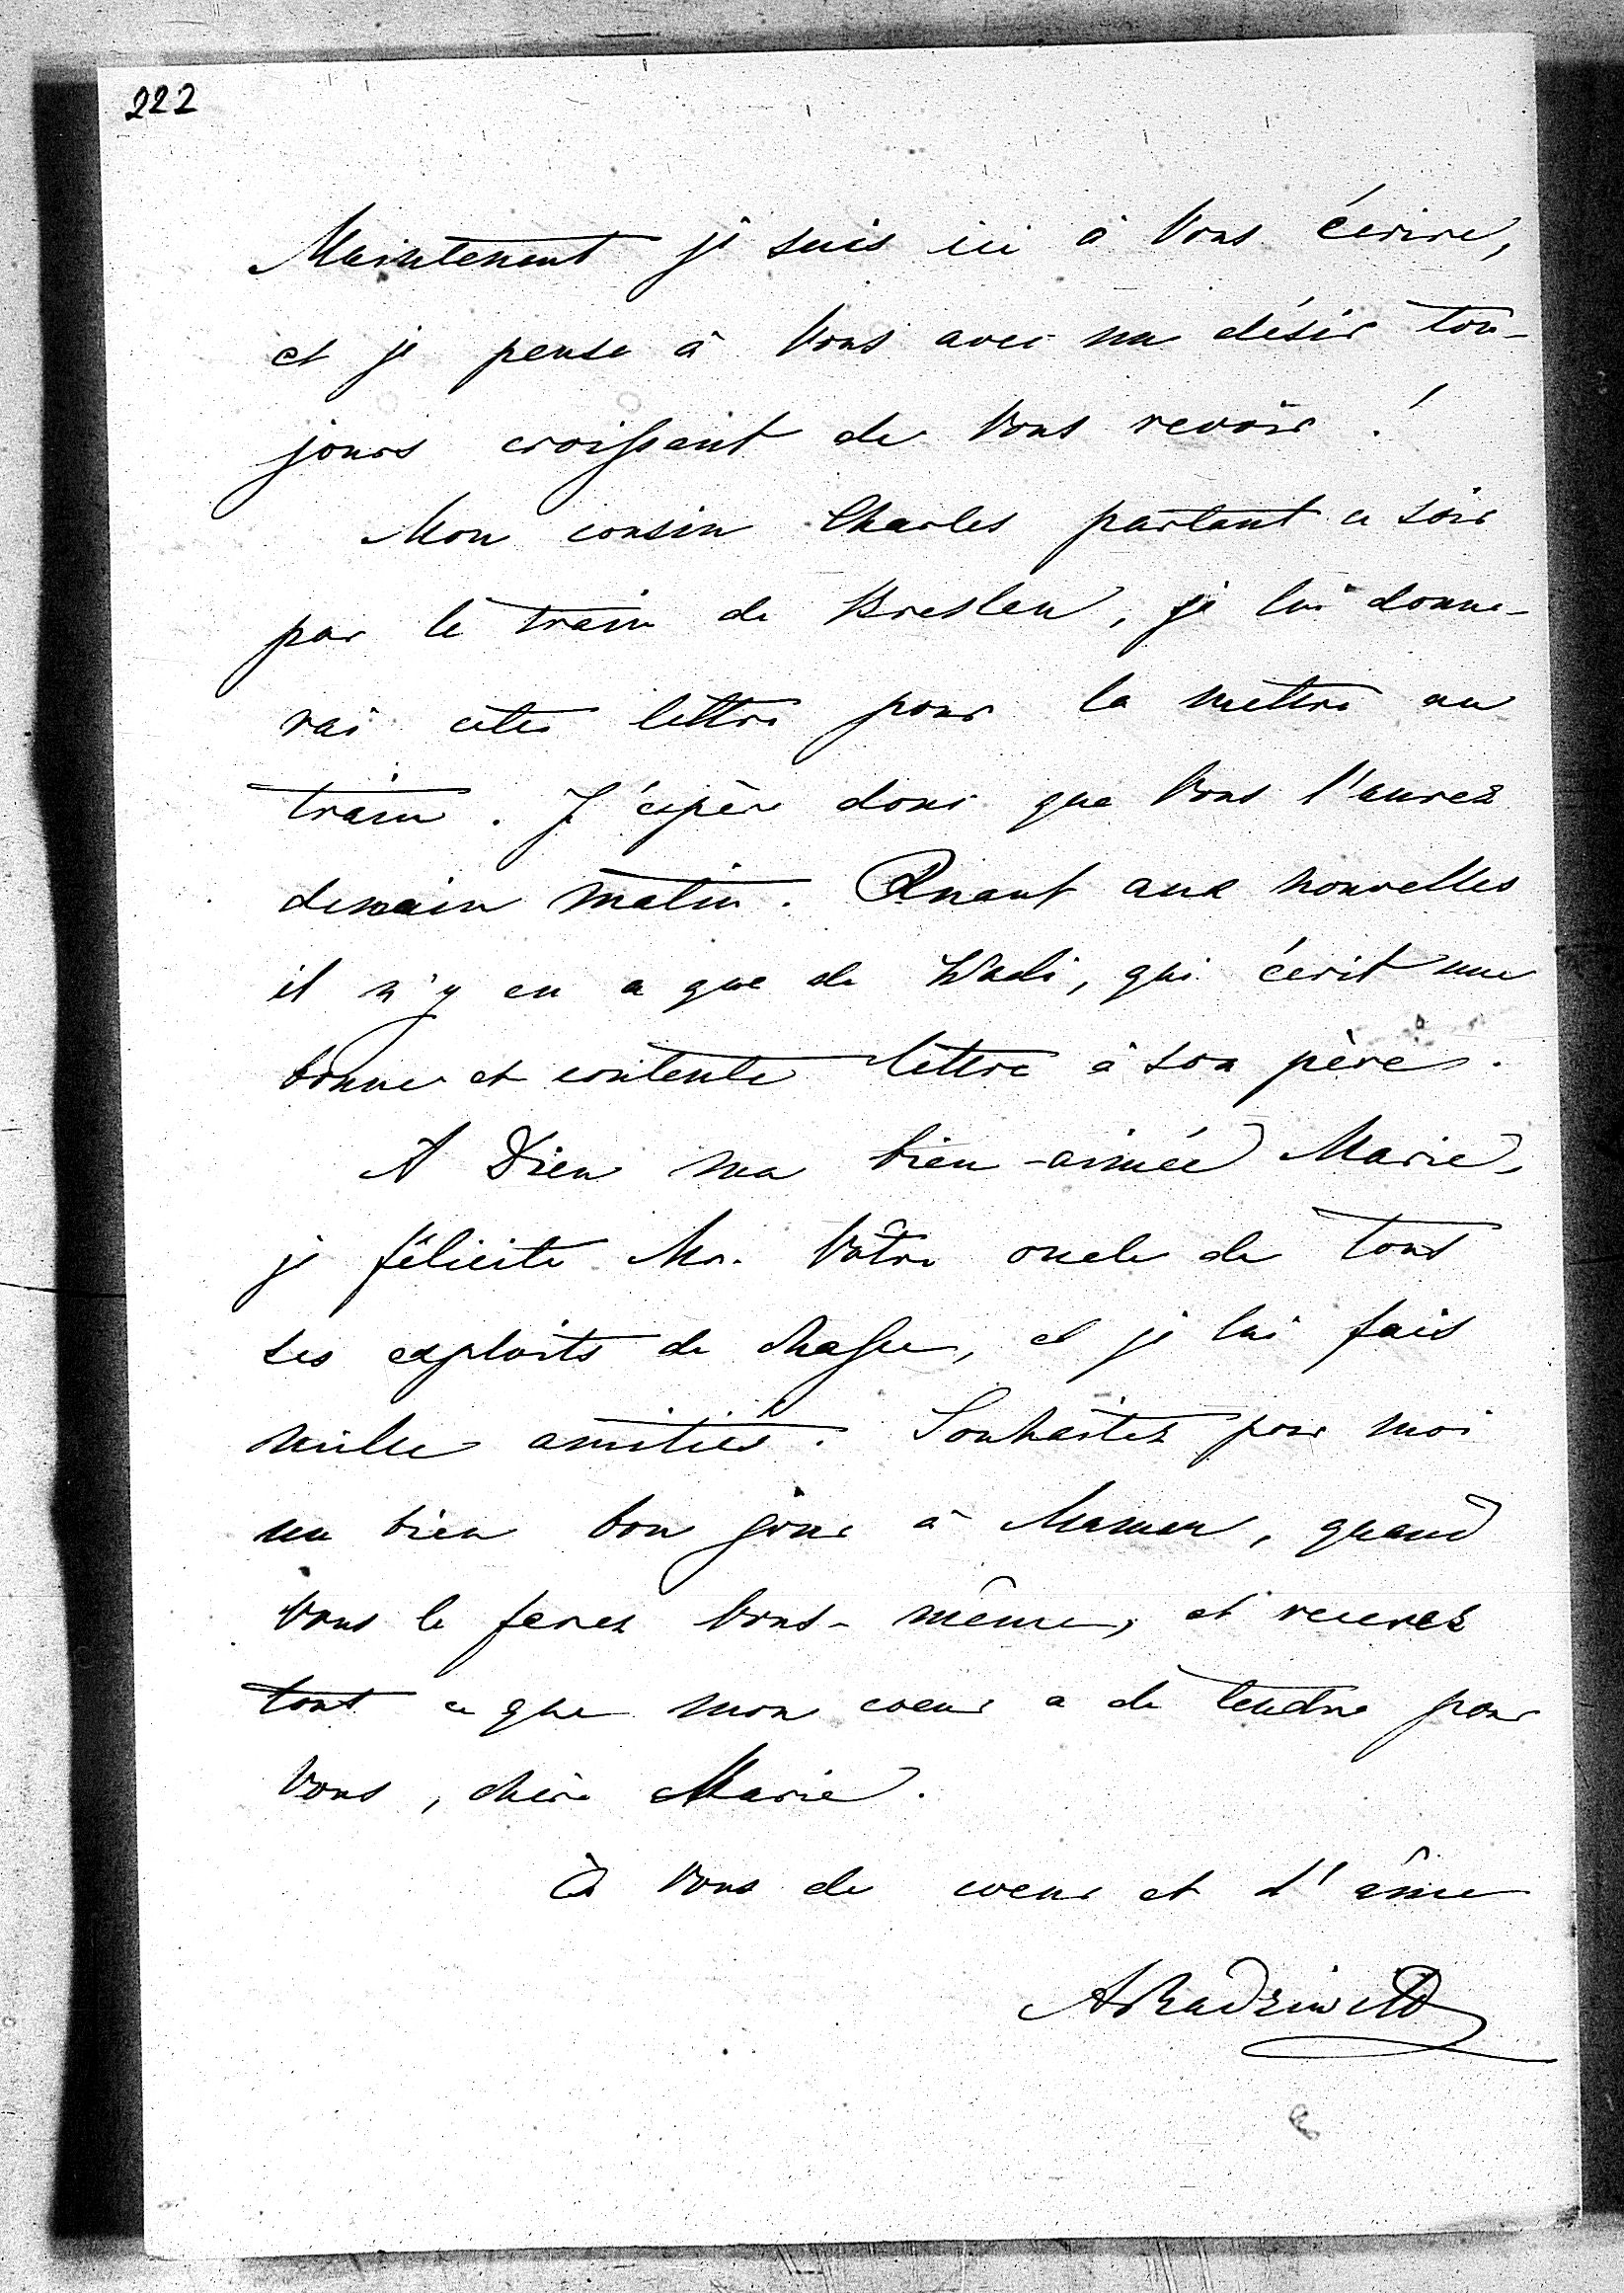 222
Maintenant je suis ici à Vous écrire,
et je pense à Vous avec un désir tou-
jours croissant de Vous revoir !
Mon cousin Charles partant ce soir
par le train de Breslau, je lui donne-
rai cette lettre pour la mettre au
train. J'espère donc que Vous l'aurez
demain matin. Quant aux nouvelles
il n'y en a que de Wadi, qui écrit une
bonne et contente lettre à son père.
A Dieu ma bien-aimée Marie,
je félicite Mr. Vôtre oncle de tous
ses exploits de chasse, et je lui fais
mille amitiés. Souhaitez pour moi
un bien bon jour à Maman, quand
Vous le ferez Vous-même, et recevez
tout ce que mon coeur a de tendre pour
Vous, chère Marie.
à Vous de coeur et d'âme
ARadziwill